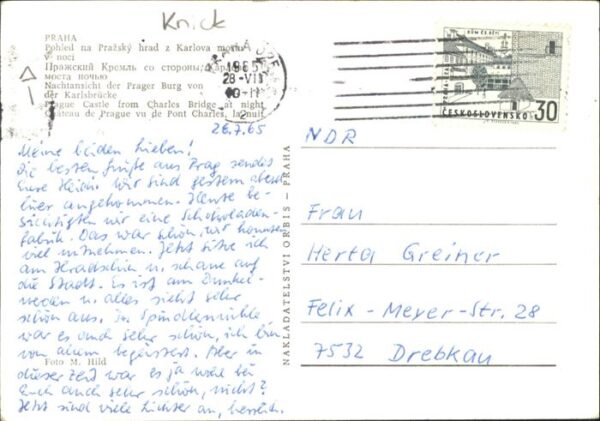 Knick
PRAHA
Pohled na Pražský hrad z Karlova mostu
v noci
Пражский Кремль со стороны Карлова
моста ночью
Nachtansicht der Prager Burg von
der Karlsbrücke
Prague Castle from Charles Bridge at night
Château de Prague vu de Pont Charles, la nuit
PRAHA
1965
28-VII
2
ČESKOSLOVENSKO
30
26.7.65
Meine beiden Lieben!
Die besten Grüße aus Prag sendet
Eure Heidi. Wir sind gestern abend
hier angekommen. Heute be-
sichtigten wir eine Schokoladen-
fabrik. Das war schön, wir konnten
viel mitnehmen. Jetzt sitze ich
am Hradschin u. schaue auf
die Stadt. Es ist am Dunkel-
werden u. alles sieht sehr
schön aus. In Spindlermühle
war es auch sehr schön, ich bin
von allem begeistert. Aber in
dieser Zeit war es ja wohl bei
Euch auch sehr schön, nicht?
Jetzt sind viele Lichter an, herrlich.
Foto M. Hild
NAKLADATELSTVÍ ORBIS – PRAHA
NDR
Frau
Herta Greiner
Felix-Meyer-Str. 28
7532 Drebkau